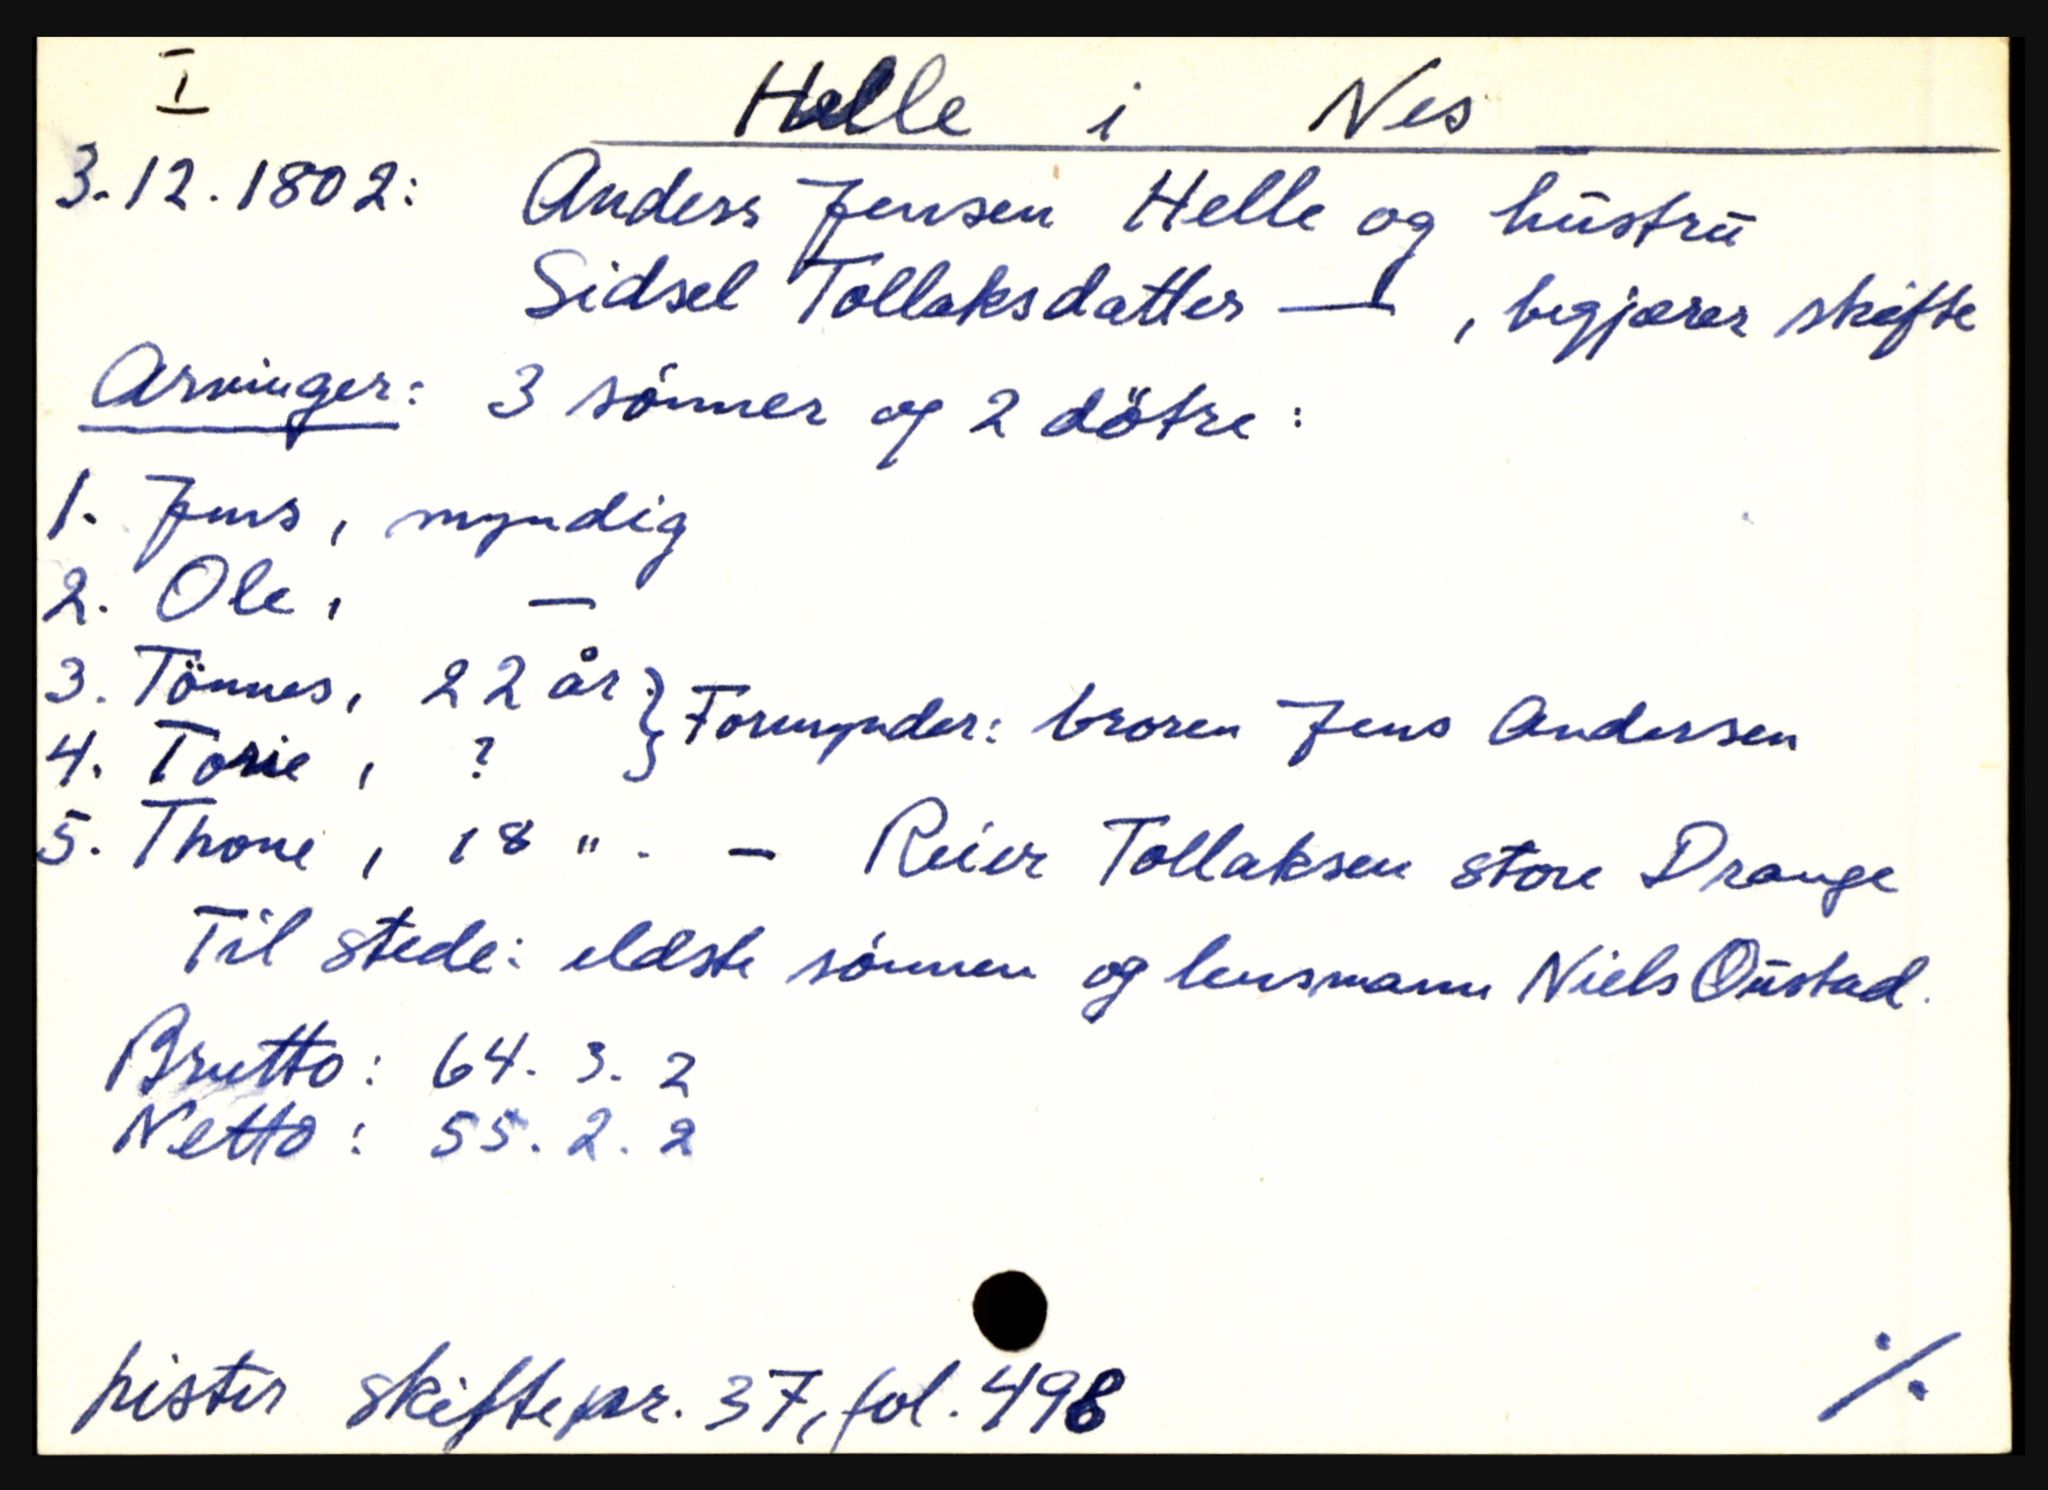 I
Helle i Nes
3.12.1802: Anders Jensen Helle og hūstrū
Sidsel Tollaksdatter — , begjærer skifte
Arvinger: 3 sónner og 2 dötre:
1. Jens, myndig
2. Ole, —
3. Tönnes, 22 år } Formynder: broren Jens Andersen
4. Torie, ?
5. Thone, 18 " . — Reier Tollaksen store Drange
Til stede: eldste sónnen og lensmann Niels Oūstad.
Brutto: 64. 3. 2
Netto: 55. 2. 2
Lister skiftepr. 37, fol. 498
./.